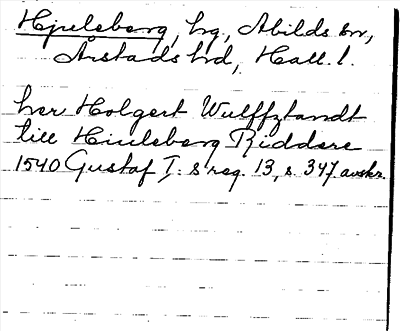 Hjuleberg, hg., Abilds sn,
Årstads hd, Hall. l.
her Holgert Wulffztandt
till Hiuleberg Riddere
1540 Gustaf I:s reg. 13, s. 347 avskr.